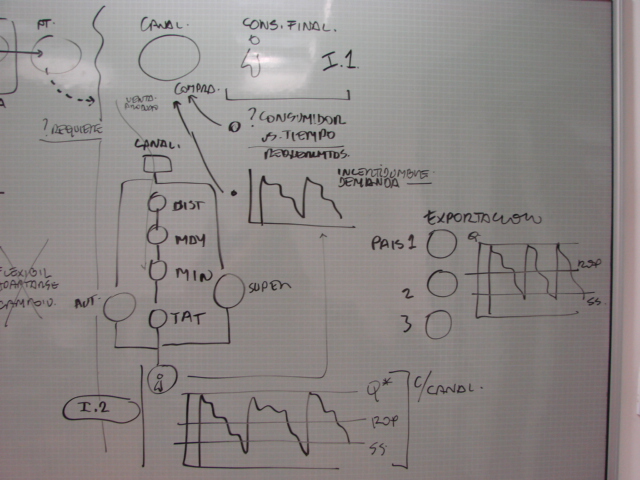 PT.
CANAL.
CONS. FINAL.
I.1
COMPRA.
? REQUIERE
? CONSUMIDOR
vs. TIEMPO
REQUERIMTOS.
CANAL.
INCERTIDUMBRE
DEMANDA
DIST
MAY
MIN
TAT
AUT.
SUPER
EXPORTACION
PAIS 1
2
3
Q
ROP
SS
FLEXIBIL
ADAPTARSE
CAMBIO.
I.2
Q*
ROP
SS
C/CANAL.